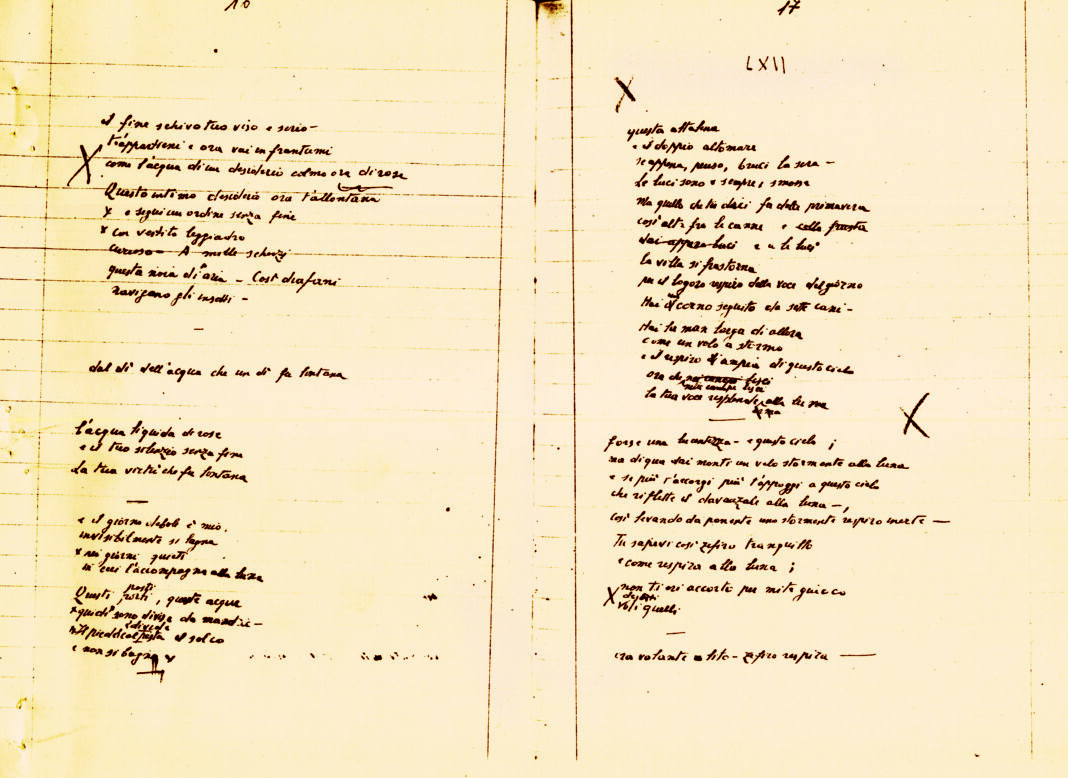 16
il fine schivo tuo viso e serio –
t'appartieni e ora vai in frantumi
X come l'acqua di un desiderio colmo ora di rose
Questo intimo desiderio ora t'allontana
x e segui un ordine senza fine
x con vestito leggiadro
curioso – A mille scherzi
questa noia di aria – Così diafani
navigano gli insetti –
–
dal dì dell'acqua che un dì fa lontana
l'acqua liquida di rose
e il tuo silenzio senza fine
La tua virtù che fa lontana
—
e il giorno debole è mio.
invisibilmente si lagna
x nei giorni quieti
in cui l'accompagna alla luna
posti
Questi, queste acque
x quindi sono divise da mandrie –
il piede calpesta il solco
e non si bagna x
17
LXII
X
questa altalena
e il doppio altomare
se appena, penso, bruci la sera –
Le luci sono e sempre, smosse
Ma quello che tu dici fa della primavera
così alti fra le canne e
dai luci e a le luci
la villa si frastorna
per il logoro respiro della voce del giorno
Hai un corno seguito da sette cani –
Hai la man larga di allora
come un volo a stormo
e il respiro d'ampia di questo cielo
ora che
la tua voce risponde alla luna
luna
—
X
forse una lucentezza – e questo cielo ;
ma di qua dai monti un velo stormente alla luna
e se più t'accorgi più l'appoggi a questo cielo
che riflette il davanzale alla luna –,
così levando da ponente uno stormente respiro inerte —
Tu sapevi così zefiro tranquillo
e come respira alla luna ;
non ti eri accorto per mite giuoco
X
voli quelli
—
era volante – zefiro respira —